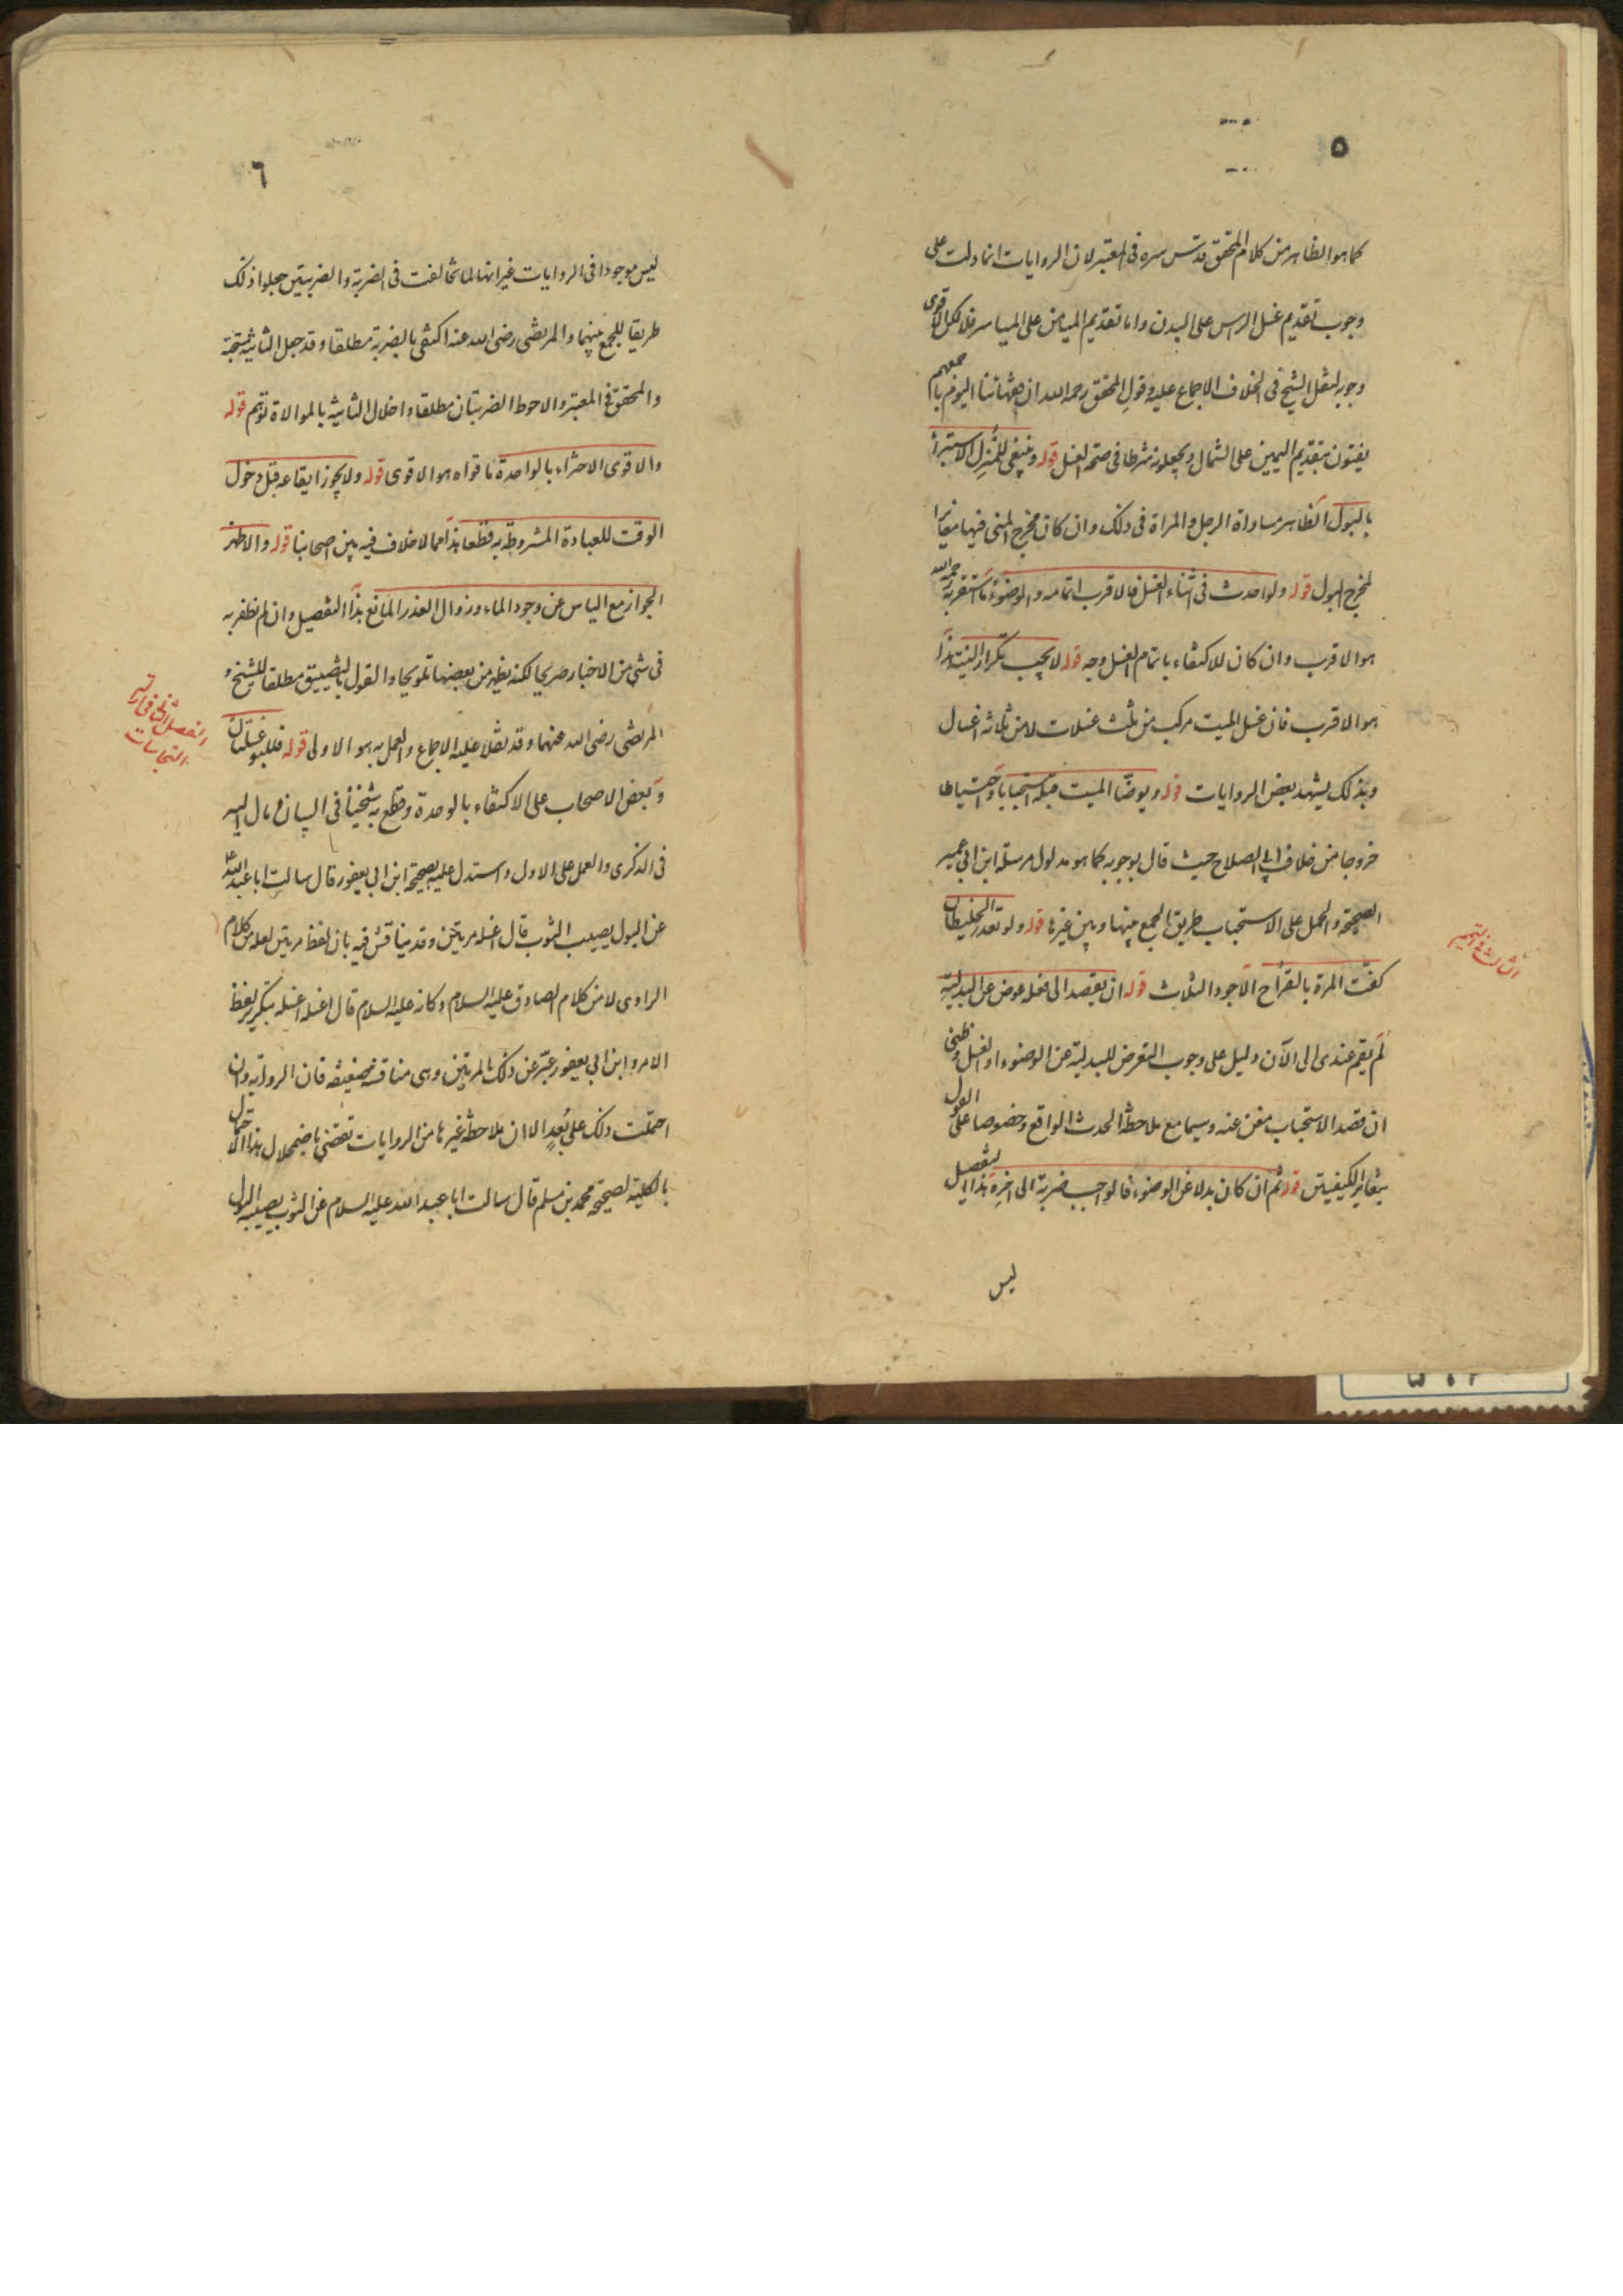 ٥
كما هو الظاهر من كلام المحقق قدس سره في المعتبر لان الروايات انما دلت على
وجوب تقديم غسل الرس على البدن واما تقديم الميامن على المياسر فلا لكن الاقوى
وجوبه لنقل الشيخ في الخلاف الاجماع عليه وقول المحقق رحمه الله ان فقهائنا اليوم باجمعهم
يفتون بتقديم اليمين على الشمال ويجعلونه شرطا في صحة الغسل قوله وينبغي للمنزل الاستبراء
بالبول الظاهر مساواة الرجل والمراة في ذلك وان كان مخرج المنى فيها مغايرا
لمخرج البول قوله ولو احدث في اثناء الغسل فالاقرب اتمامه والوضوء ما استقربه رحمه الله
هو الاقرب وان كان للاكتفاء باتمام الغسل وجه قوله لا يجب تكرار النية هذا
هو الاقرب فان غسل الميت مركب من ثلث غسلات لا من ثلاثة اغسال
وبذلك يشهد بعض الروايات قوله ويوضأ الميت قبله استحبابا واحتياطا
خروجا من خلاف ابي الصلاح حيث قال بوجوبه كما هو مدلول مرسلة ابن ابي عمير
الصحيحة والحمل على الاستحباب طريق الجمع بينها وبين غيرها قوله ولو تعذر الخليطان
كفت المرة بالقراح الاجود الثلاث قوله ان يقصد الى فعله عوض عن البدلية
لم يقم عندى الى الآن دليل على وجوب التعرض للبدلية عن الوضوء او الغسل وظنى
ان قصد الاستحباب مغن عنه وسيما مع ملاحظة الحدث الواقع وخصوصا على القول
بتغاير الكيفيتين قوله ثم ان كان بدلا عن الوضوء فالواجب ضربة الى اخره هذا التفصيل
ليس
٦
ليس موجودا في الروايات غير انها لما تخالفت في الضربة والضربتين جعلوا ذلك
طريقا للجمع بينهما والمرتضى رضى الله عنه اكتفى بالضربة مطلقا وقد جعل الثانية مستحبة
والمحقق في المعتبر والاحوط الضربتان مطلقا واخلال الثانية بالموالاة توهم قوله
والاقوى الاجزاء بالواحدة ما قواه هو الاقوى قوله ولا يجوز ايقاعه قبل دخول
الوقت للعبادة المشروطة به قطعا هذا مما لا خلاف فيه بين اصحابنا قوله والاظهر
الجواز مع الياس عن وجود الماء وزوال العذر المانع هذا التفصيل وان لم نظفر به
في شئ من الاخبار صريحا لكنه يظهر من بعضها تلويحا والقول بالتضييق مطلقا للشيخ و
المرتضى رضى الله عنهما وقد نقلا عليه الاجماع والعمل به هو الاولى قوله فللبول غسلتان
وبعض الاصحاب على الاكتفاء بالوحدة وقطع به شيخنا في البيان ومال اليه
في الذكرى والعمل على الاول واستدل عليه بصحيحة ابن ابي يعفور قال سالت ابا عبد الله ع
عن البول يصيب الثوب قال اغسله مرتين وقد يناقش فيه بان لفظ مرتين لعله من كلام
الراوى لا من كلام الصادق عليه السلام وكانه عليه السلام قال اغسله اغسله بتكرير لفظ
الامر وابن ابي يعفور عبّر عن ذلك بالمرتين وهى مناقشة ضعيفة فان الرواية وان
احتملت ذلك على بُعدٍ الا ان ملاحظة غيرها من الروايات تقتضى باضمحلال هذا الاحتمال
بالكلية لصحيحة محمد بن مسلم قال سالت ابا عبد الله عليه السلام عن الثوب يصيبه البول
الفصل الثاني في ازالة
النجاسات
الثالث في التيمم